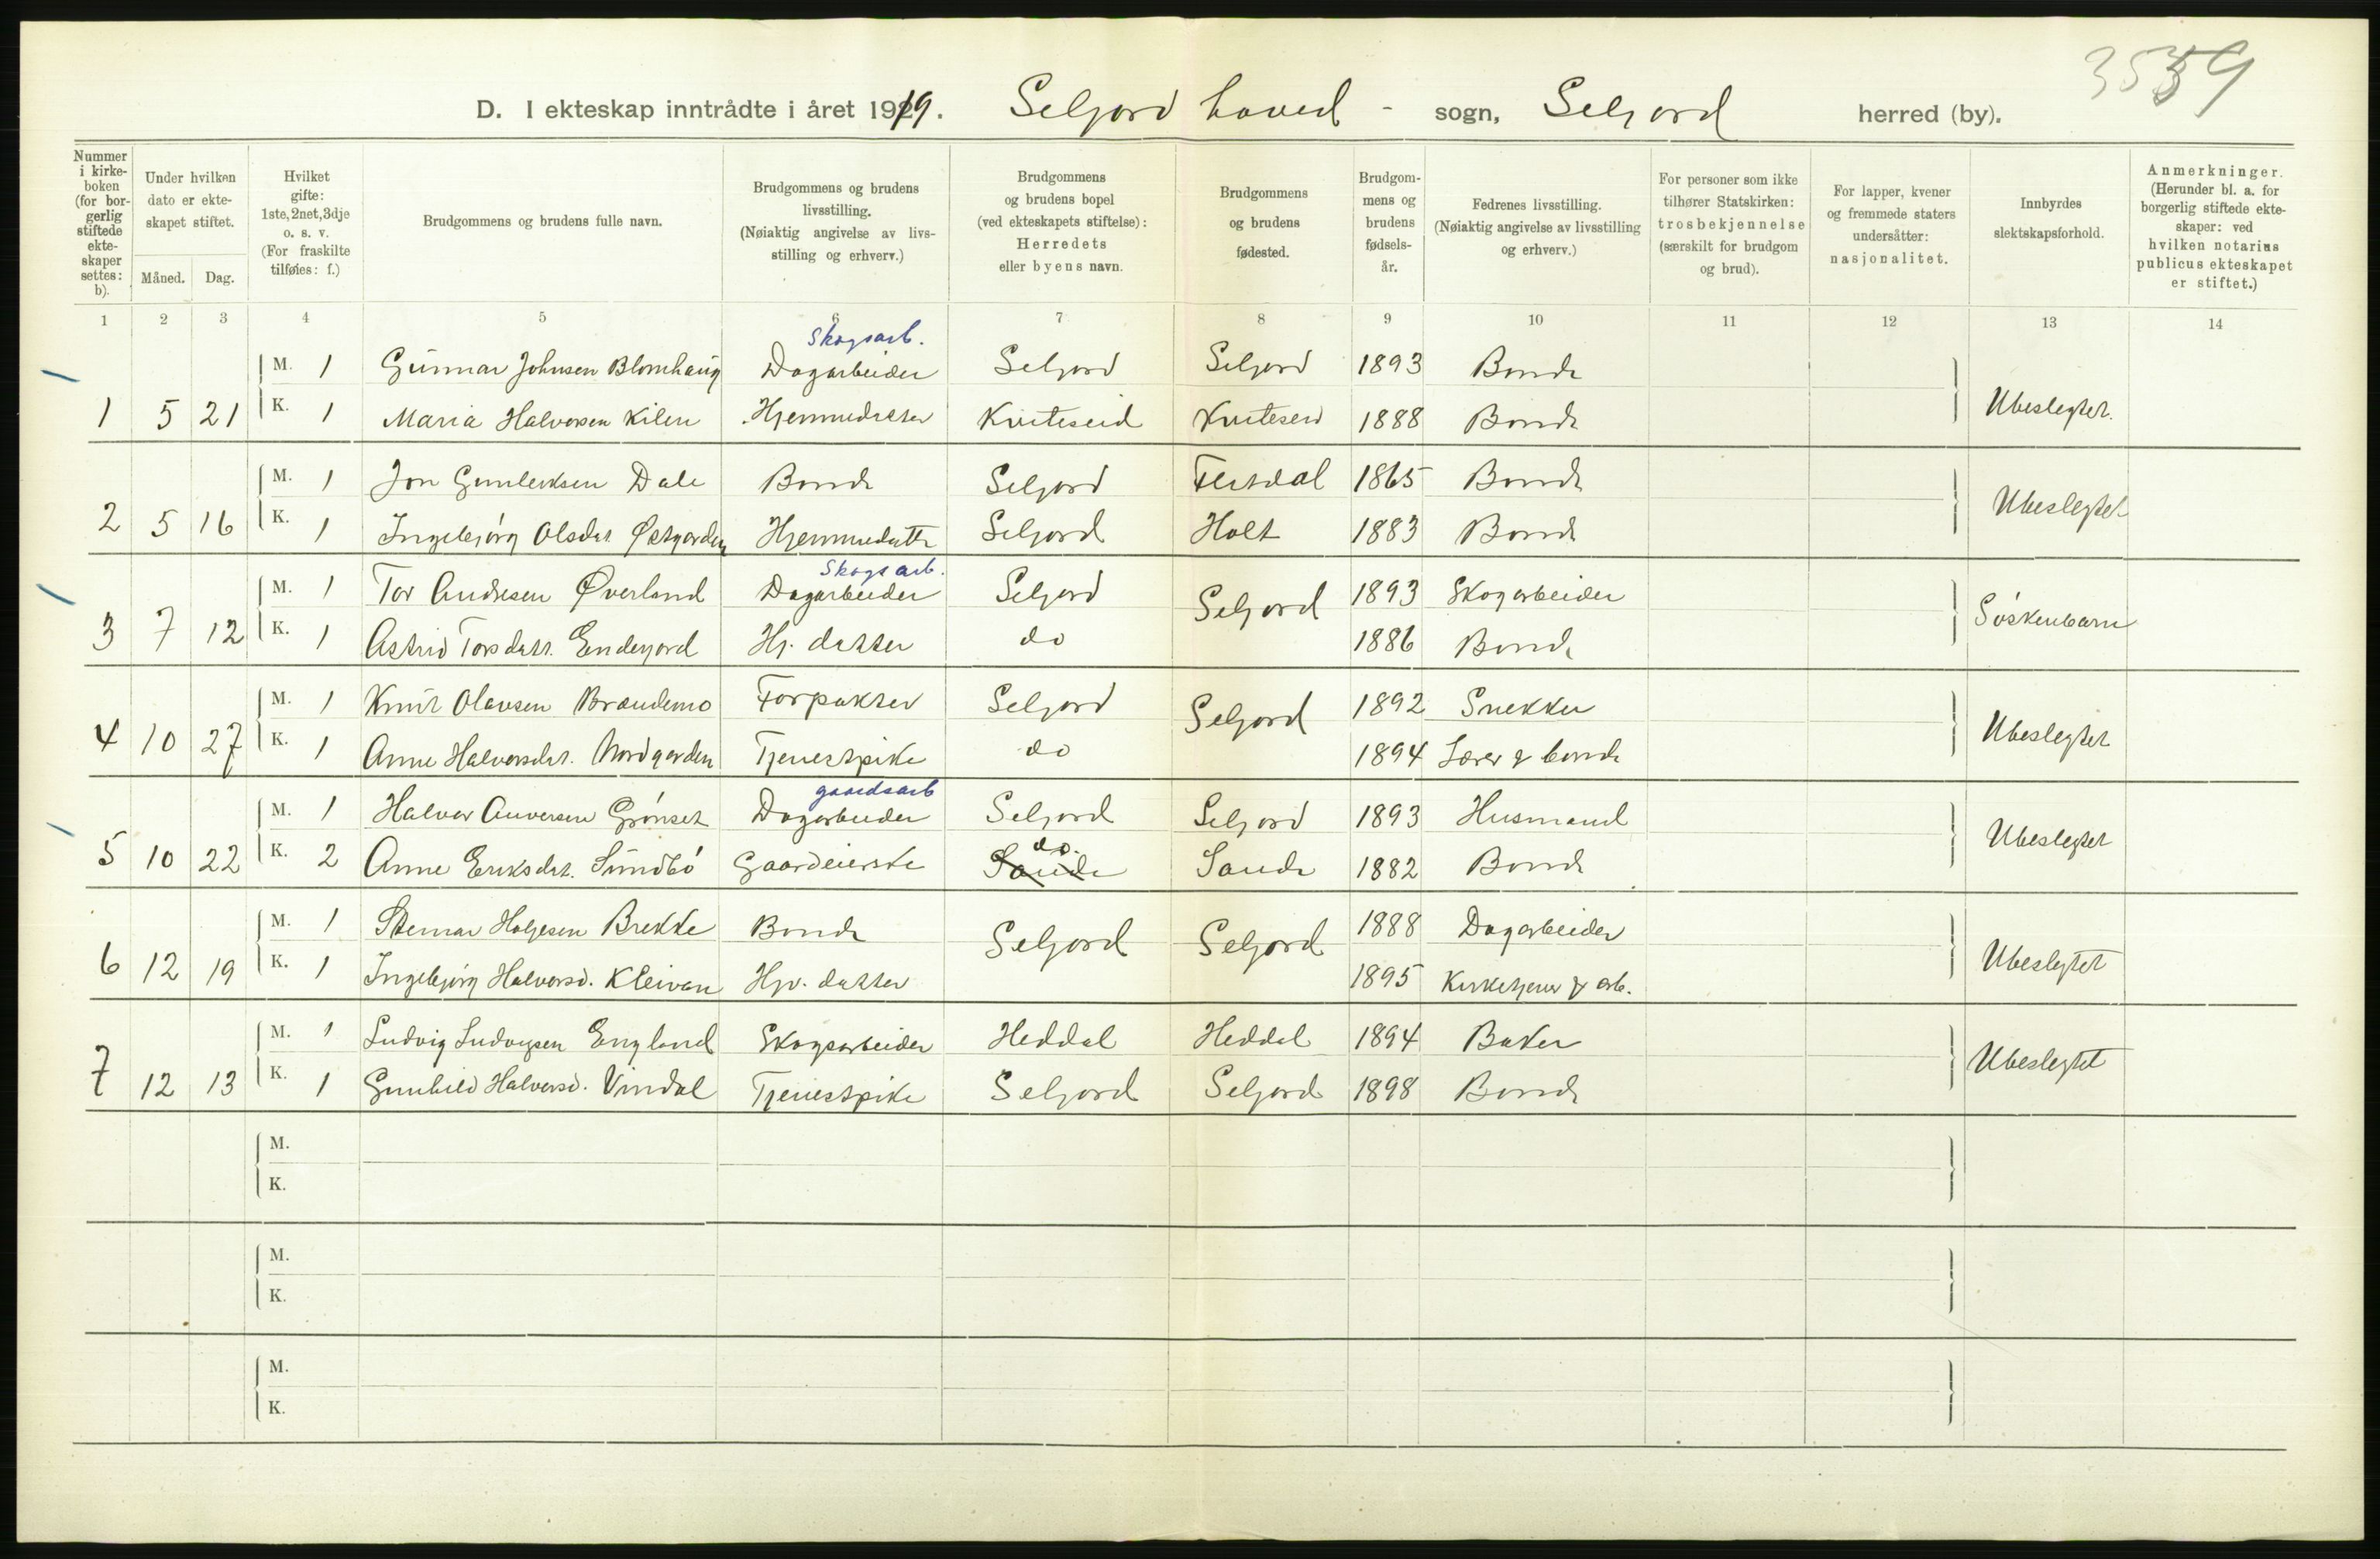 3559
D. I ekteskap inntrådte i året 1919. Seljord hoved- sogn, Seljord herred (by).
Nummer i kirkeboken (for borgerlig stiftede ekteskaper settes: b).
Under hvilken dato er ekteskapet stiftet.
Måned. Dag.
Hvilket gifte: 1ste, 2net, 3dje o. s. v. (For fraskilte tilføies: f.)
Brudgommens og brudens fulle navn.
Brudgommens og brudens livsstilling. (Nøiaktig angivelse av livsstilling og erhverv.)
Brudgommens og brudens bopel (ved ekteskapets stiftelse): Herredets eller byens navn.
Brudgommens og brudens fødested.
Brudgommens og brudens fødselsår.
Fedrenes livsstilling. (Nøiaktig angivelse av livsstilling og erhverv.)
For personer som ikke tilhører Statskirken: trosbekjennelse (særskilt for brudgom og brud).
For lapper, kvener og fremmede staters undersåtter: nasjonalitet.
Innbyrdes slektskapsforhold.
Anmerkninger. (Herunder bl. a. for borgerlig stiftede ekteskaper: ved hvilken notarius publicus ekteskapet er stiftet.)
1 2 3 4 5 6 7 8 9 10 11 12 13 14
Skogsarb.
M. 1 Gunnar Johnsen Blomhaug Dagarbeider Seljord Seljord 1893 Bonde
1 5 21 K. 1 Maria Halvorsen Kilen Hjemmedatter Kviteseid Kviteseid 1888 Bonde Ubeslegtet.
M. 1 Jon Gunleiksen Dale Bonde Seljord Flatdal 1865 Bonde
2 5 16 K. 1 Ingebjørg Olsdat. Østgarden Hjemmedatte Seljord Holt 1883 Bonde Ubeslegtet
Skogsarb.
M. 1 Tor Andresen Øverland Dagarbeider Seljord Seljord 1893 Skogarbeider
3 7 12 K. 1 Astrid Torsdatr. Endegjord Hj. datter do 1886 Bonde Søskenbarn
M. 1 Knut Olavsen Brandemo Forpakter Seljord Seljord 1892 Snekker
4 10 27 K. 1 Anne Halvorsdat. Nordgarden Tjenestpike do 1894 Lærer & bonde Ubeslegtet
gaardsarb
M. 1 Halvor Anversen Grønset Dagarbeider Seljord Seljord 1893 Husmand
5 10 22 K. 2 Anne Eriksdat. Sundbø Gaardeierske Saude do. Saude 1882 Bonde Ubeslegtet
M. 1 Steinar Holjesen Brekke Bonde Seljord Seljord 1888 Dagarbeider
6 12 19 K. 1 Ingebjørg Halvorsd. Kleivan Hjv. datter 1895 Kirketjener & arb. Ubeslegtet
M. 1 Ludvig Ludvigsen England Skogsarbeider Heddal Heddal 1894 Baker
7 12 13 K. 1 Gunhild Halvorsd. Vindal Tjenestpike Seljord Seljord 1898 Bonde Ubeslegtet
M.
K.
M.
K.
M.
K.